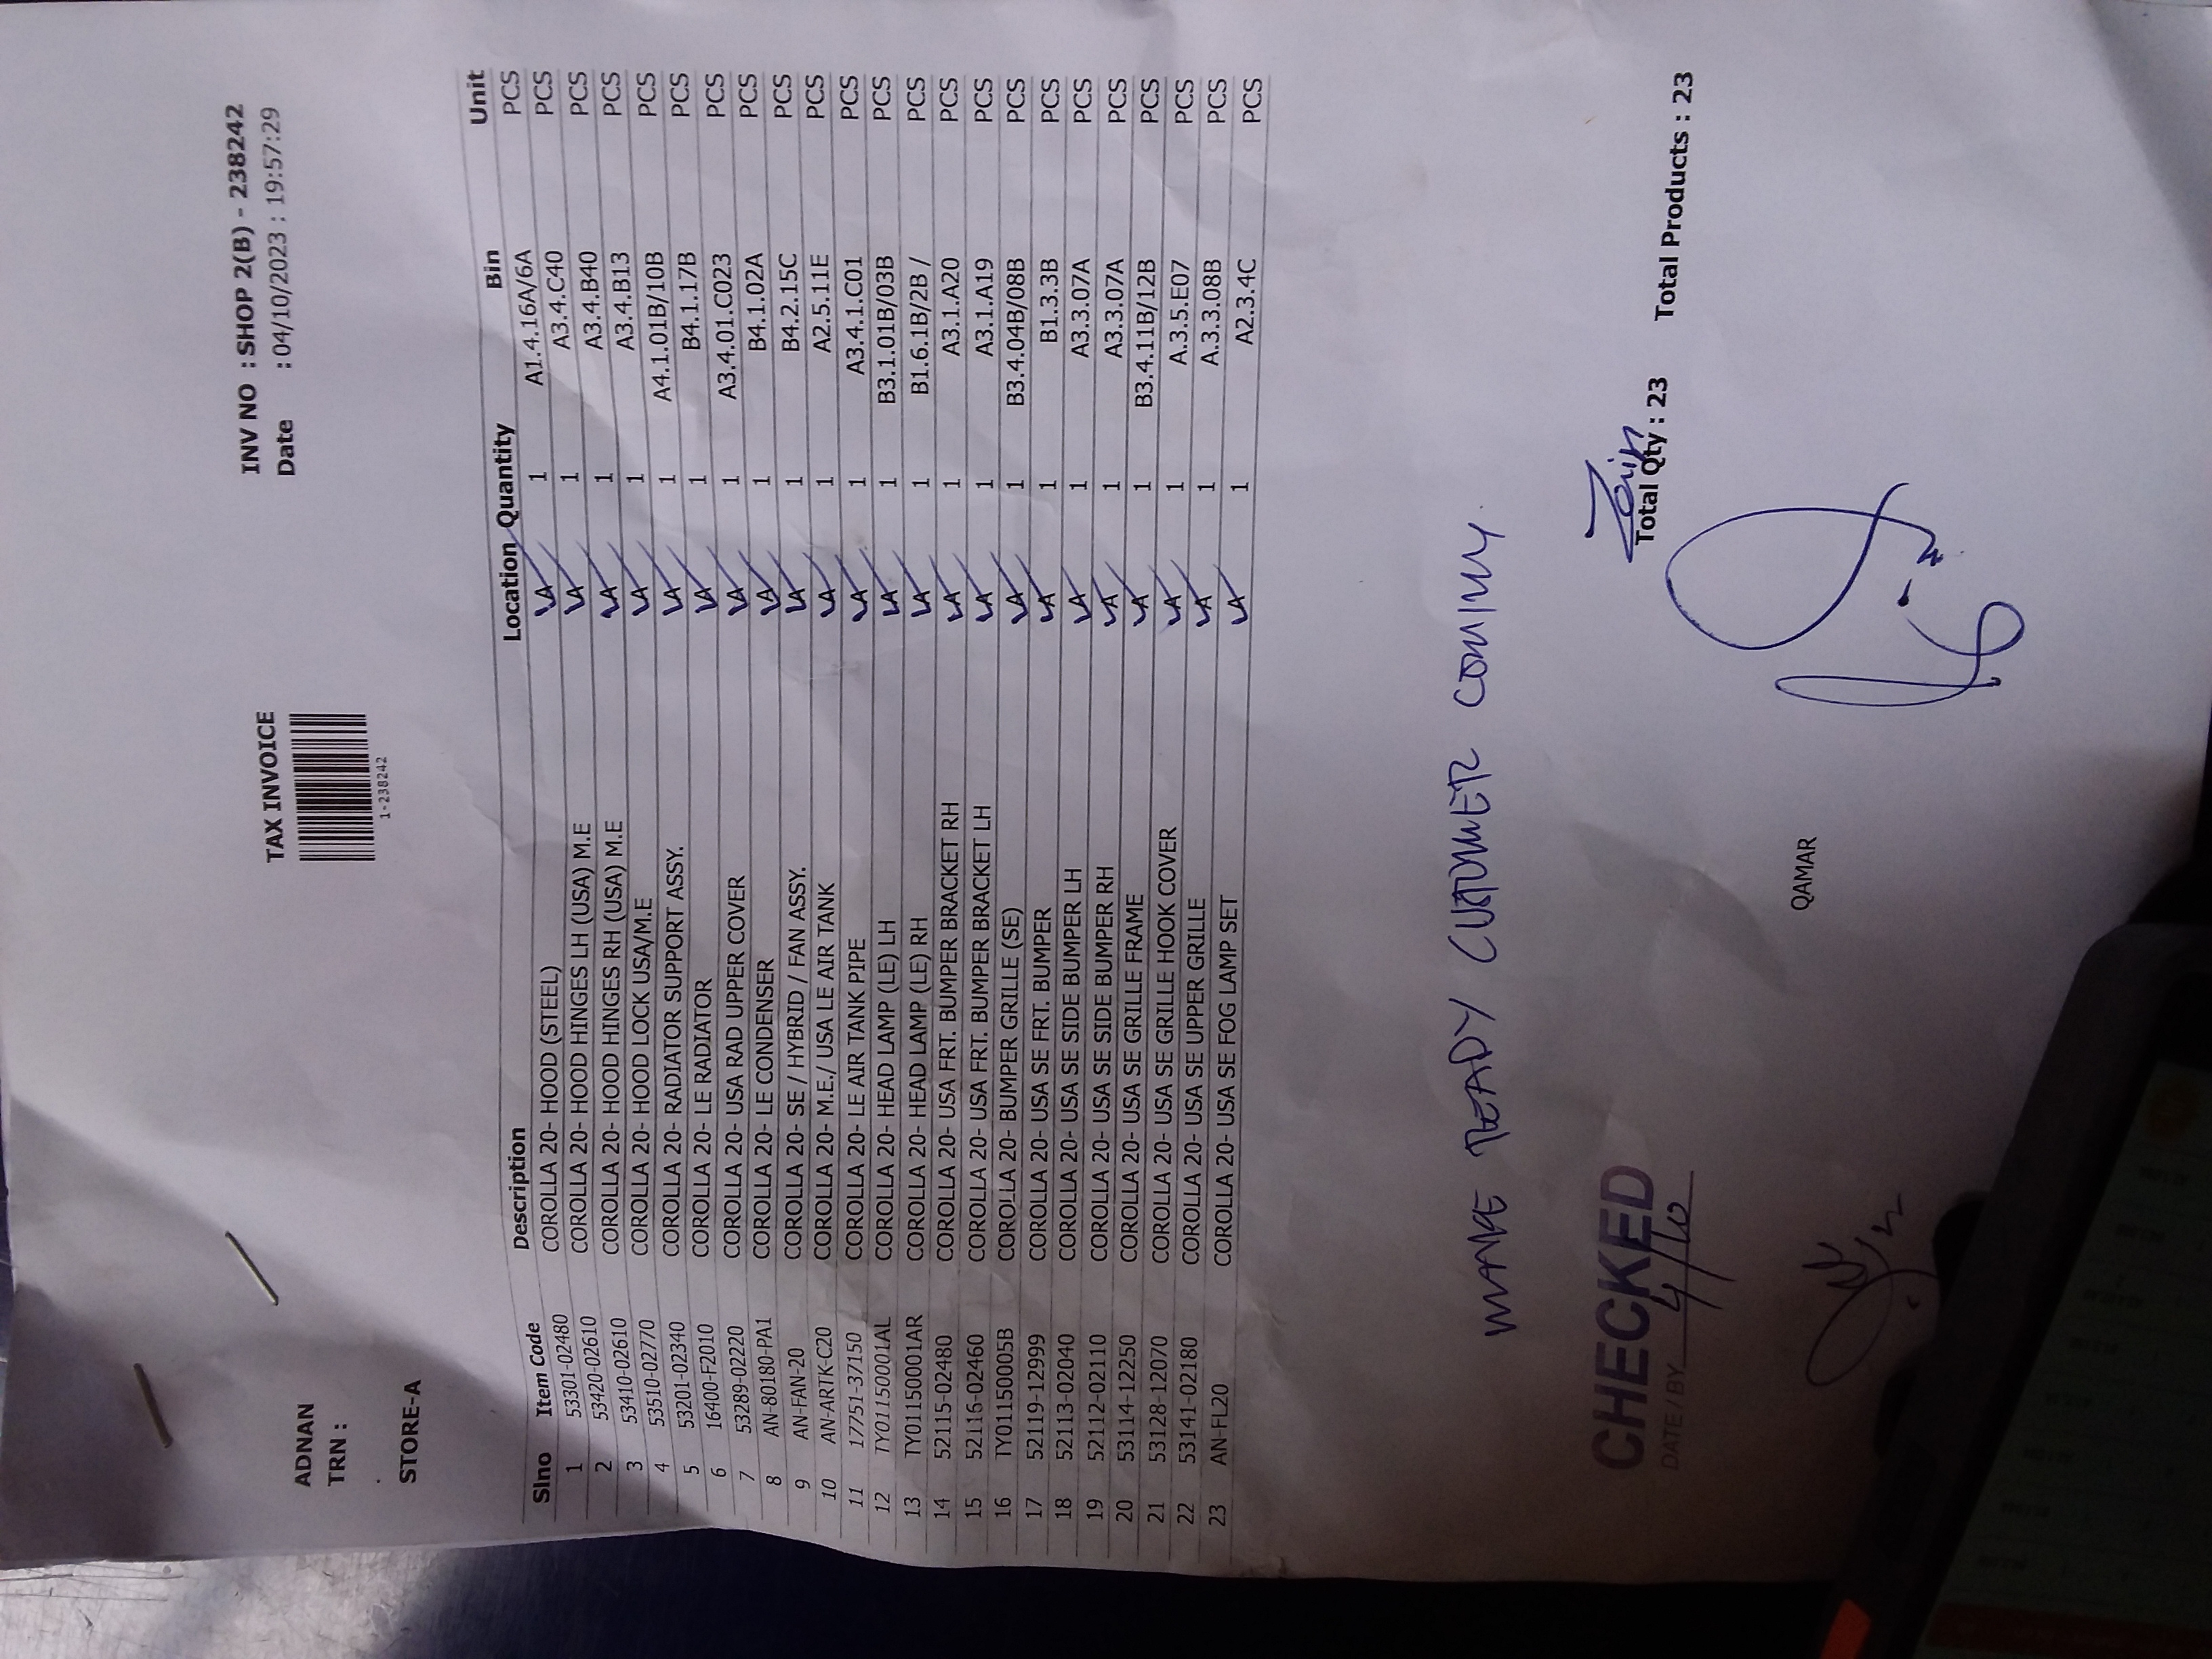 TAX INVOICE
1-238242
INV NO : SHOP 2(B) - 238242
Date : 04/10/2023 : 19:57:29
ADNAN
TRN :
.
STORE-A
Slno Item Code Description Location Quantity Bin Unit
1 53301-02480 COROLLA 20- HOOD (STEEL) LA 1 A1.4.16A/6A PCS
2 53420-02610 COROLLA 20- HOOD HINGES LH (USA) M.E LA 1 A3.4.C40 PCS
3 53410-02610 COROLLA 20- HOOD HINGES RH (USA) M.E LA 1 A3.4.B40 PCS
4 53510-02770 COROLLA 20- HOOD LOCK USA/M.E LA 1 A3.4.B13 PCS
5 53201-02340 COROLLA 20- RADIATOR SUPPORT ASSY. LA 1 A4.1.01B/10B PCS
6 16400-F2010 COROLLA 20- LE RADIATOR LA 1 B4.1.17B PCS
7 53289-02220 COROLLA 20- USA RAD UPPER COVER LA 1 A3.4.01.C023 PCS
8 AN-80180-PA1 COROLLA 20- LE CONDENSER LA 1 B4.1.02A PCS
9 AN-FAN-20 COROLLA 20- SE / HYBRID / FAN ASSY. LA 1 B4.2.15C PCS
10 AN-ARTK-C20 COROLLA 20- M.E./ USA LE AIR TANK LA 1 A2.5.11E PCS
11 17751-37150 COROLLA 20- LE AIR TANK PIPE LA 1 A3.4.1.C01 PCS
12 TY01150001AL COROLLA 20- HEAD LAMP (LE) LH LA 1 B3.1.01B/03B PCS
13 TY01150001AR COROLLA 20- HEAD LAMP (LE) RH LA 1 B1.6.1B/2B / PCS
14 52115-02480 COROLLA 20- USA FRT. BUMPER BRACKET RH LA 1 A3.1.A20 PCS
15 52116-02460 COROLLA 20- USA FRT. BUMPER BRACKET LH LA 1 A3.1.A19 PCS
16 TY01150005B COROLLA 20- BUMPER GRILLE (SE) LA 1 B3.4.04B/08B PCS
17 52119-12999 COROLLA 20- USA SE FRT. BUMPER LA 1 B1.3.3B PCS
18 52113-02040 COROLLA 20- USA SE SIDE BUMPER LH LA 1 A3.3.07A PCS
19 52112-02110 COROLLA 20- USA SE SIDE BUMPER RH LA 1 A3.3.07A PCS
20 53114-12250 COROLLA 20- USA SE GRILLE FRAME LA 1 B3.4.11B/12B PCS
21 53128-12070 COROLLA 20- USA SE GRILLE HOOK COVER LA 1 A.3.5.E07 PCS
22 53141-02180 COROLLA 20- USA SE UPPER GRILLE LA 1 A.3.3.08B PCS
23 AN-FL20 COROLLA 20- USA SE FOG LAMP SET LA 1 A2.3.4C PCS
MAKE READY CUTOMER COMING.
CHECKED
DATE / BY 4/10
Zain
Total Qty : 23 Total Products : 23
QAMAR